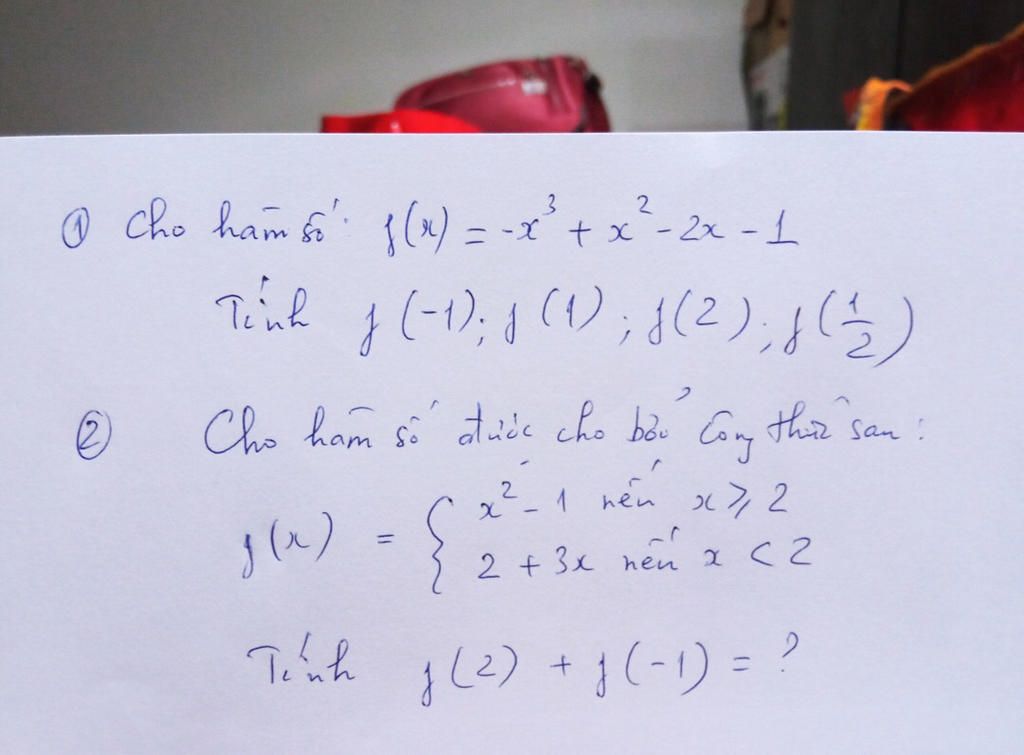 ① Cho hàm số: f(x) = -x³ + x² - 2x - 1
Tính f(-1); f(1); f(2); f(1/2)
② Cho hàm số được cho bởi công thức sau:
f(x) = { x² - 1 nếu x ⩾ 2
2 + 3x nếu x < 2
Tính f(2) + f(-1) = ?